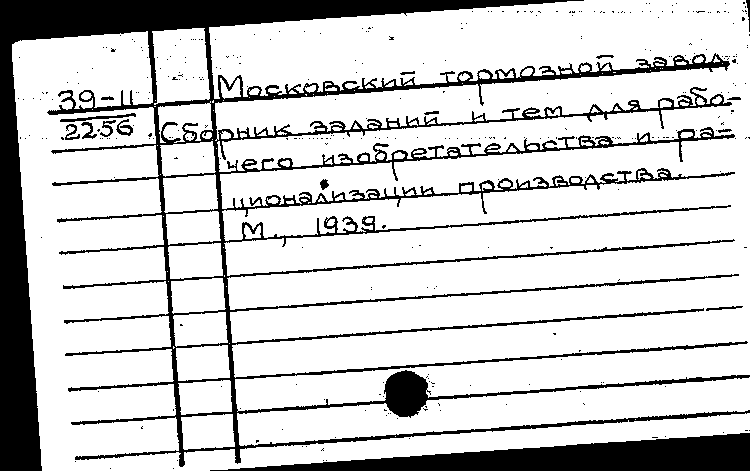 39-11 Московский тормозной завод.
2256. Сборник заданий и тем для рабо-
чего изобретательства и ра=
ционализации производства.
М., 1939.